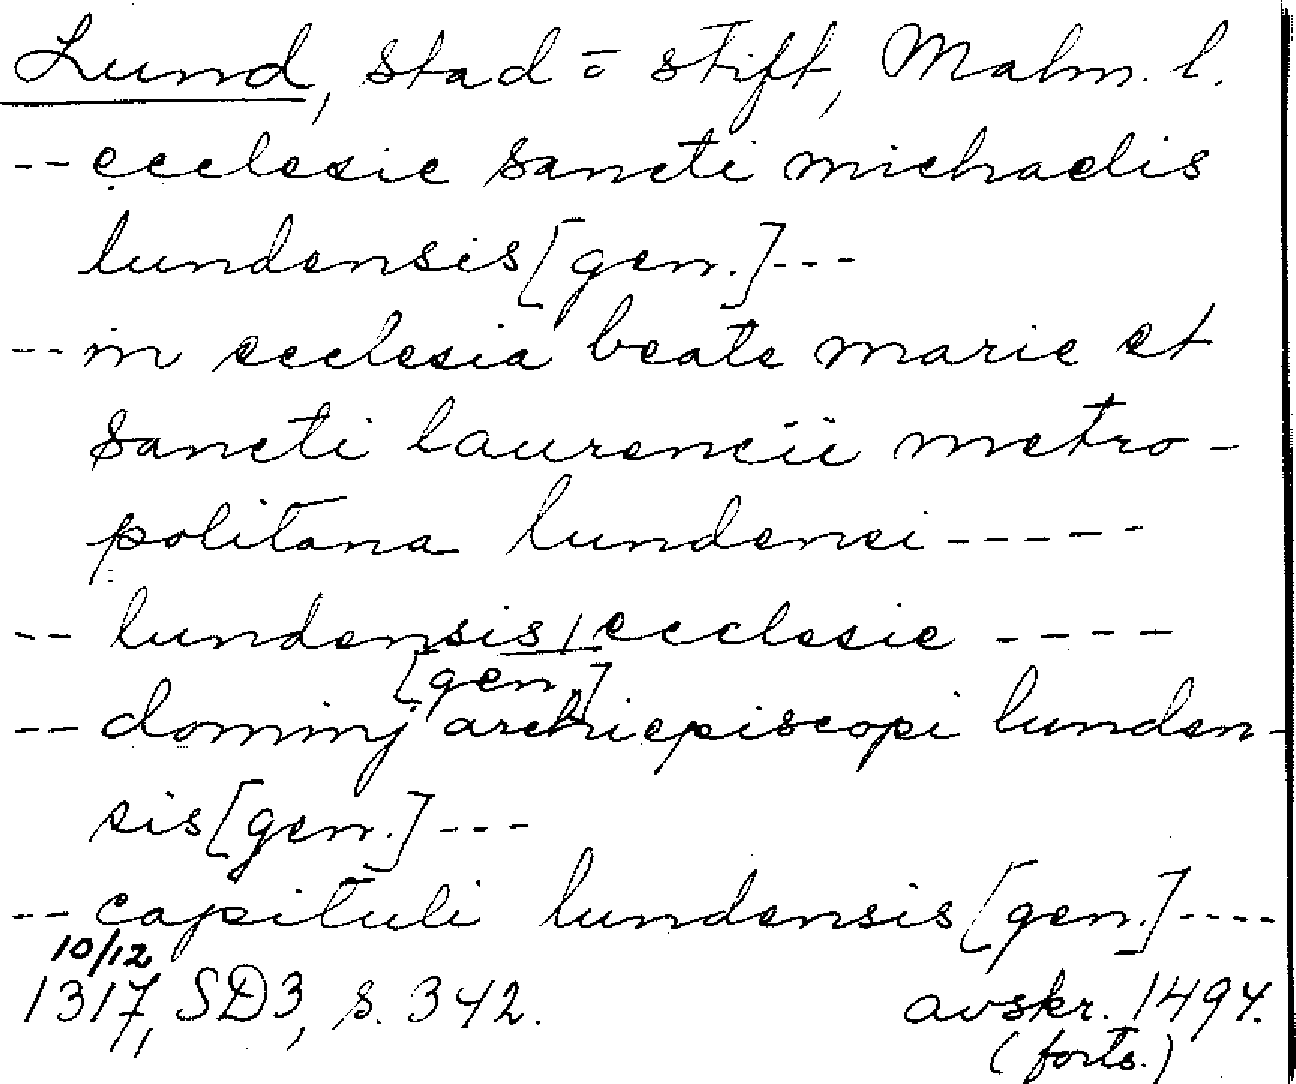 Lund, stad o stift, Malm. l.
-- ecclesie sancti michaelis
lundensis [gen.] ---
-- in ecclesia beate marie et
sancti laurencii metro-
politana lundensi -----
-- lundensis / ecclesie ----
[gen.]
-- dominj archiepiscopi lunden-
sis [gen.] ---
-- capituli lundensis [gen.] ----
10/12
1317, SD3, s. 342. avskr. 1494.
(forts.)